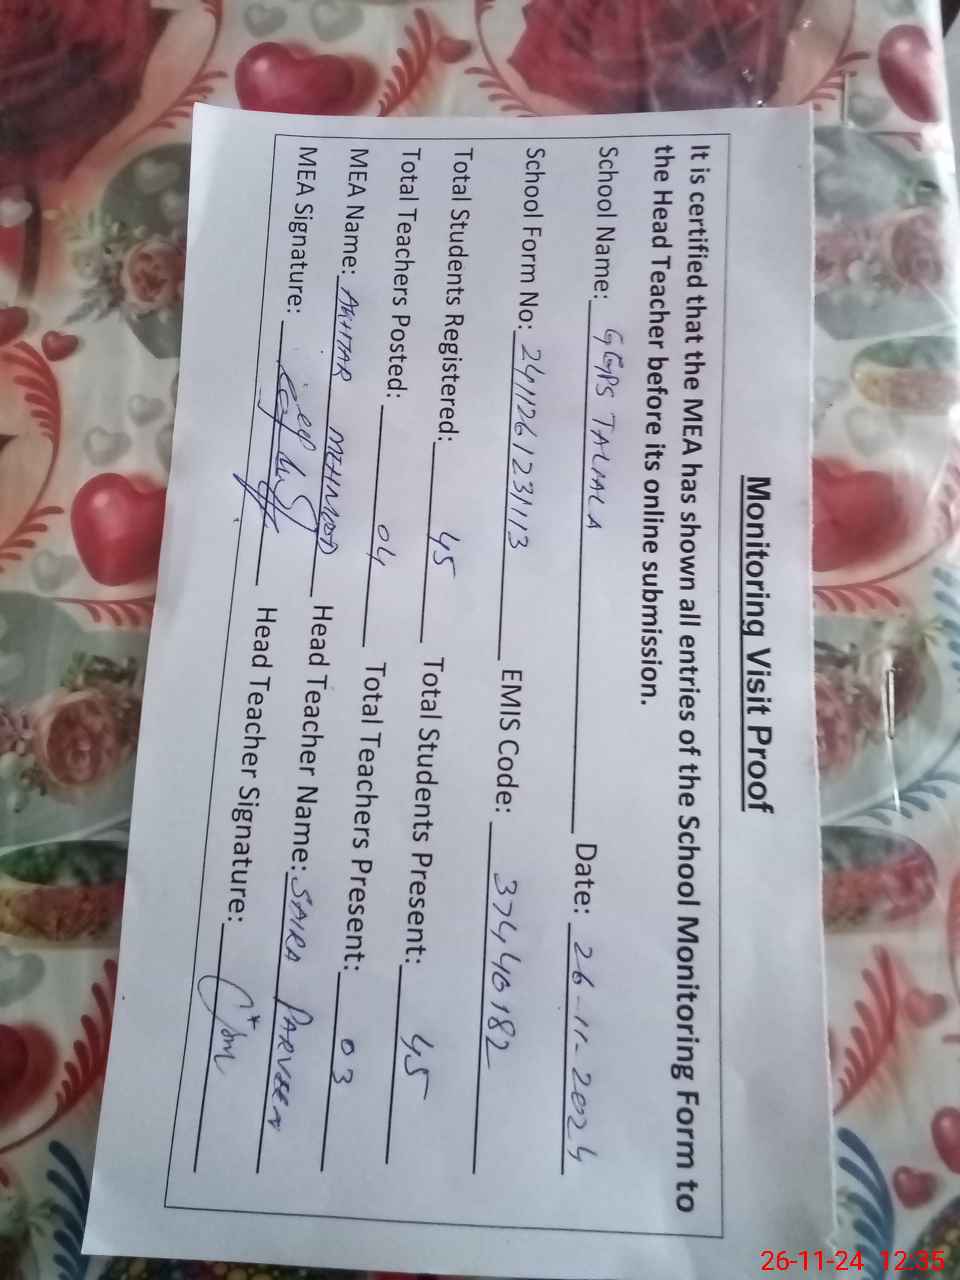 Monitoring Visit Proof
It is certified that the MEA has shown all entries of the School Monitoring Form to
the Head Teacher before its online submission.
School Name: GGPS TALHALA Date: 26-11-2024
School Form No: 241126123113 EMIS Code: 37440182
Total Students Registered: 45 Total Students Present: 45
Total Teachers Posted: 04 Total Teachers Present: 03
MEA Name: AKHTAR MEHMOOD Head Teacher Name: SAIRA PARVEEN
MEA Signature: Head Teacher Signature:
26-11-24 12:35